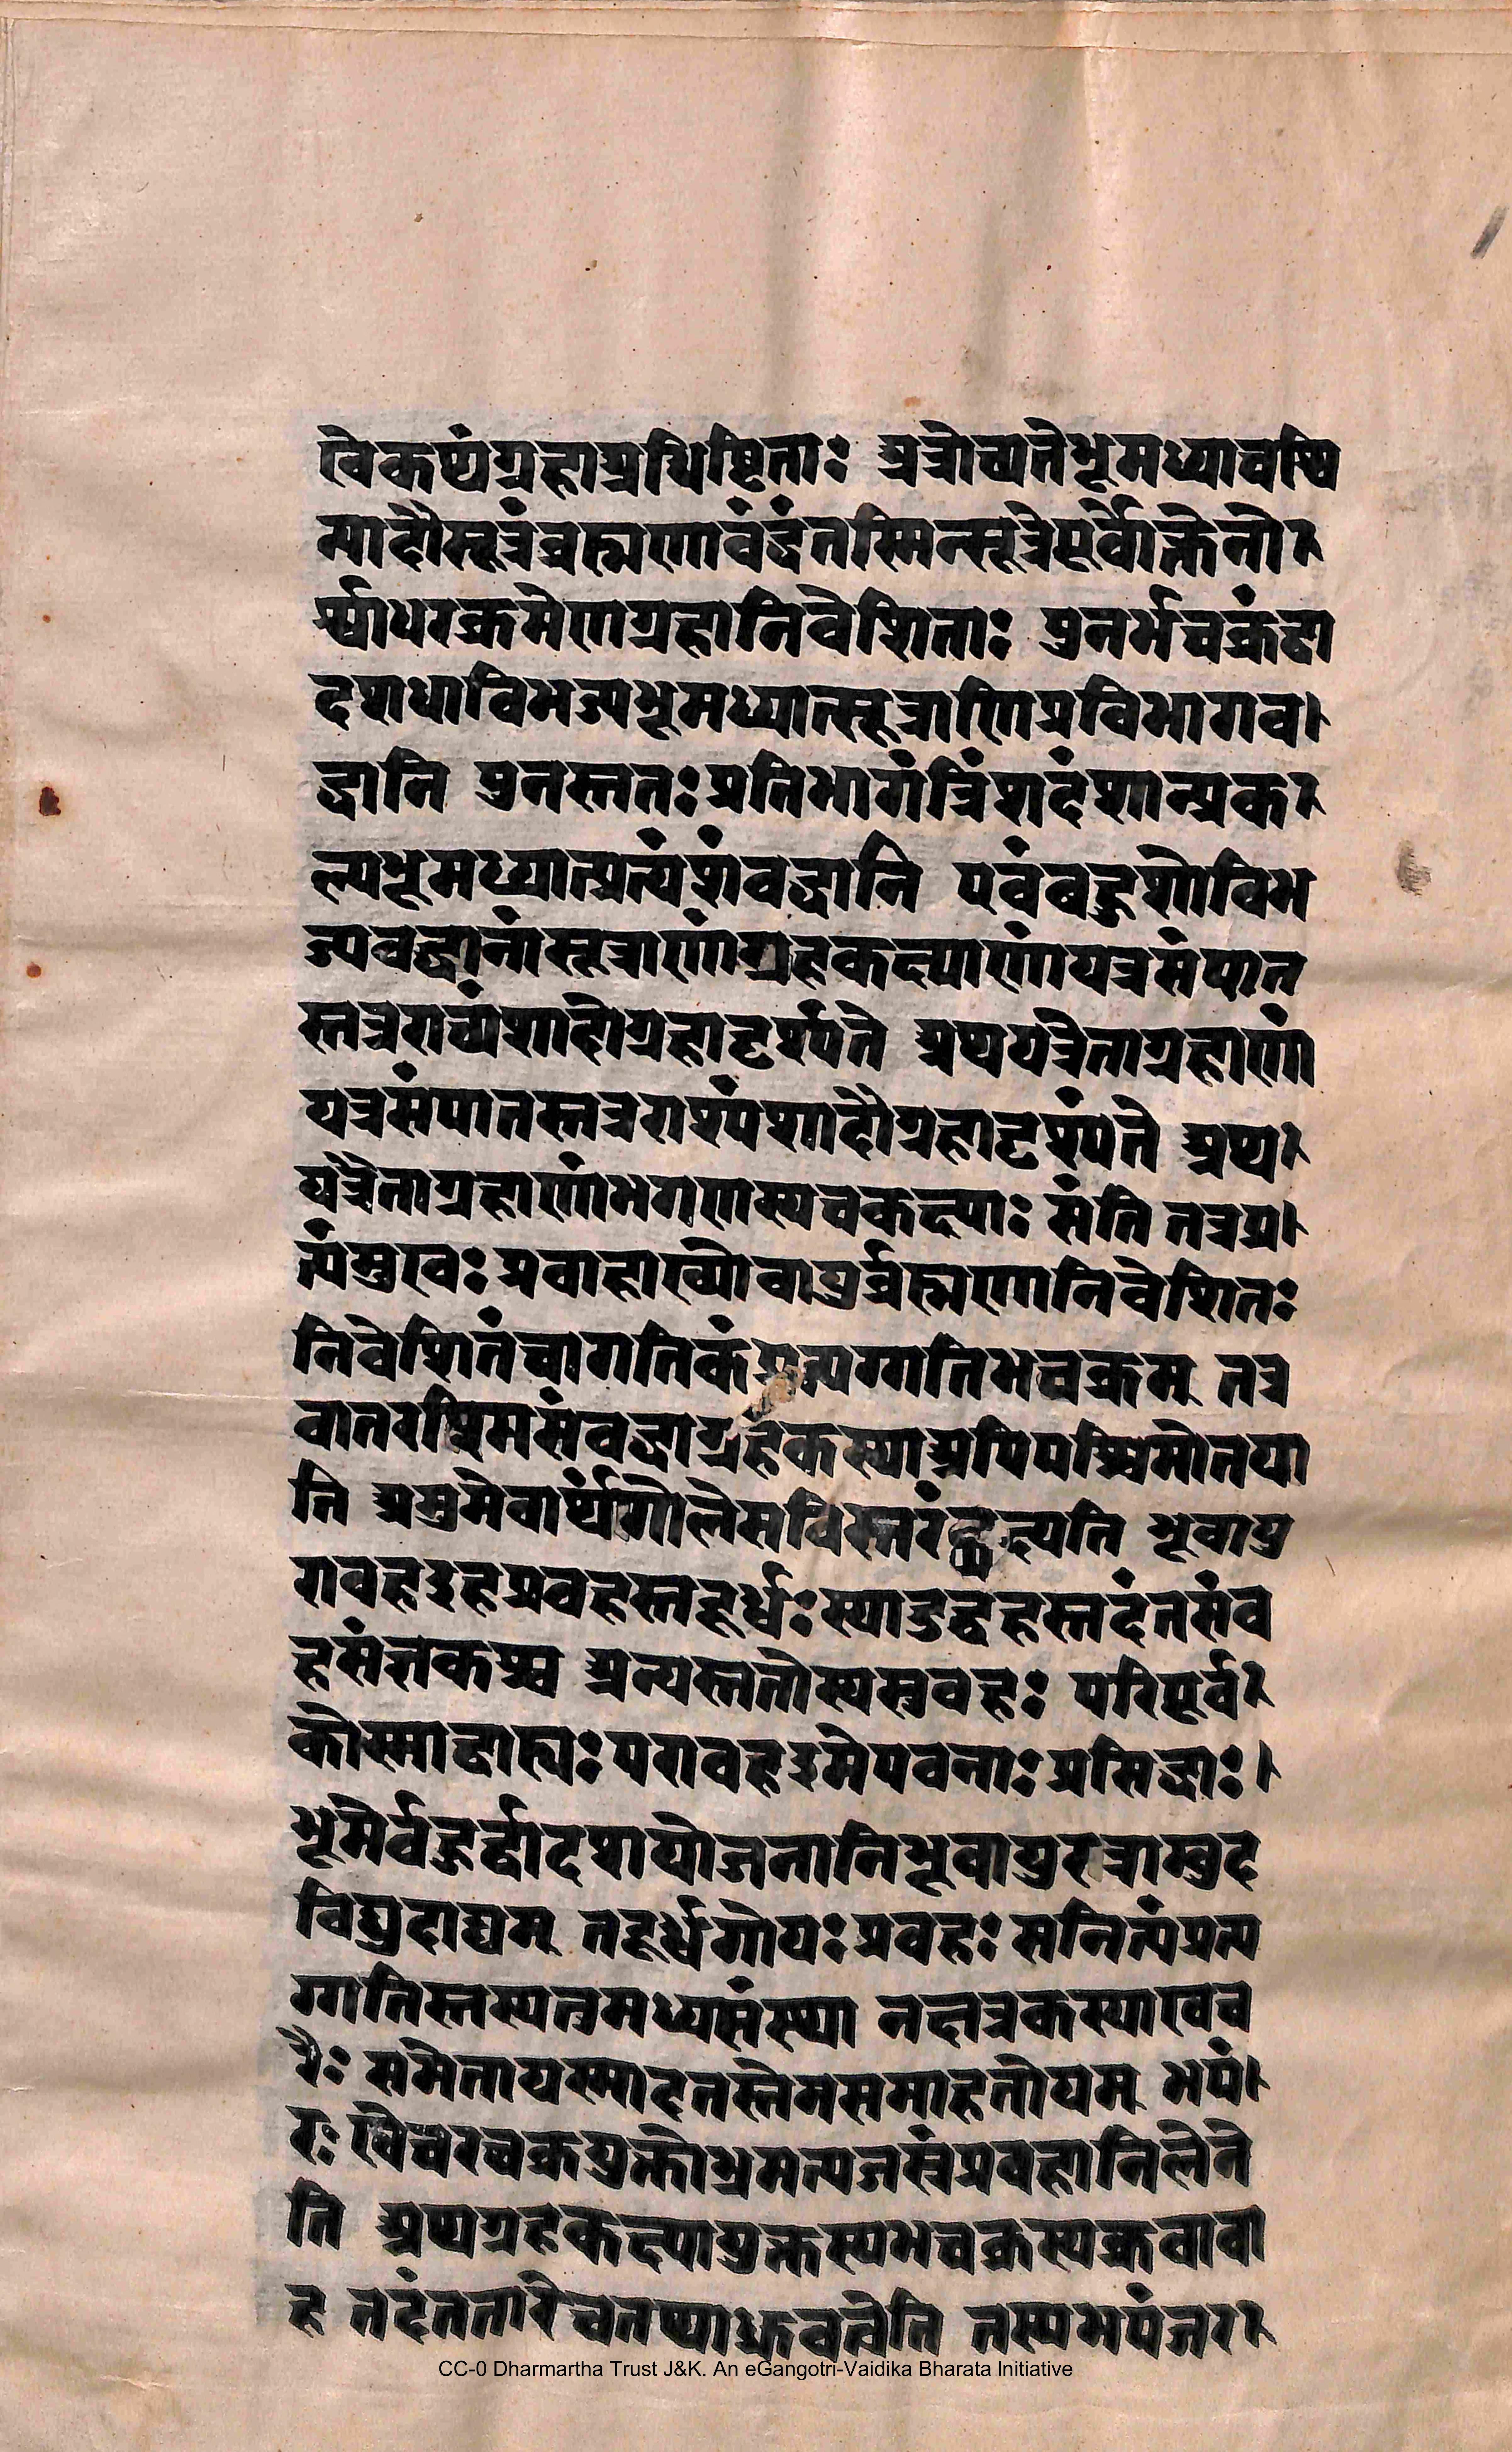 त्वेकथंग्रहाअधिष्ठिताः अत्रोच्यतेभूमध्यावस्थि
मादौसूत्रंब्रह्मणावंद्धंतस्मिन्सूत्रेपूर्वोक्तेनो
र्ध्वाधरक्रमेणग्रहानिवेशिताः पुनर्भचक्रंद्वा
दशधाविभज्यभूमध्यात्सूत्राणिप्रविभागव।
द्धानि पुनस्ततःप्रतिभागंत्रिंशदंशान्प्रक
ल्प्यभूमध्यात्प्रत्यंशंवद्धानि एवंवहुशोविभ
ज्यवद्धानांसूत्राणांग्रहकक्ष्याणांयत्रसंपात
स्तत्रराश्यंशादौग्रहादृश्यंते अथयत्रैताग्रहाणां
यत्रसंपातस्तत्रराश्यंशादौग्रहादृश्यंते अथ
यत्रैताग्रहाणांभगणस्यचकक्ष्याः संति तत्रप्र।
त्यंमुखः प्रवाहाख्योवायुर्ब्रह्मणानिवेशितः
निवेशितंचागतिकंप्रत्यग्गतिभचक्रम् तत्र
वातरश्मिसंवद्धाग्रहकक्ष्याअपिपश्चिमांतया
ति अमुमेवार्थंगोलेसविस्तरंवक्ष्यति भूवायु
रावहइहप्रवहस्तदूर्ध्वःस्यादुद्वहस्तदंतसंव
हसंज्ञकश्च अन्यस्ततोस्यसुवहः परिपूर्व
कोस्माद्वाह्यःपरावहइमेपवनाःप्रसिद्धाः।
भूमेर्वहुर्द्वादशयोजनानिभूवायुरत्राम्बुद
विद्युदाद्यम् तदूर्ध्वगोयःप्रवहः सनित्यंप्रत्य
ग्गतिस्तस्यतुमध्यसंस्था नक्षत्रकक्ष्याखच
रैः समेतायस्मादतस्तेनसमाहतोयम् भपं।
रः खेचरचक्रयुक्तोभ्रमत्यजस्रंप्रवहानिलेने
ति अथग्रहकक्ष्यायुक्तस्यभचक्रस्यध्रुवावा
ह तदंततारेचतथाध्रुवत्वेति तस्यभपंजर
CC-0 Dharmartha Trust J&K. An eGangotri-Vaidika Bharata Initiative